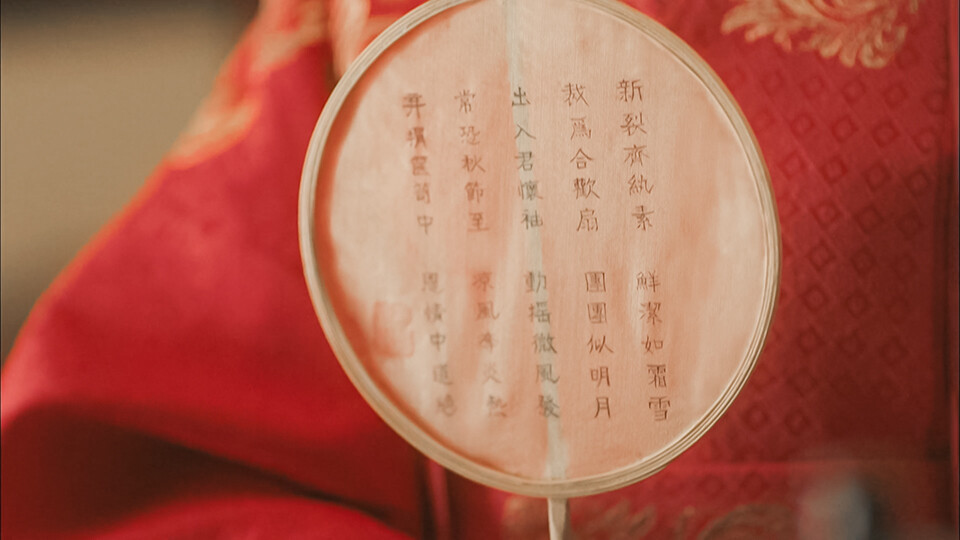 新裂齐紈素 鮮潔如霜雪
裁爲合歡扇 團團似明月
出入君懷袖 動搖微風發
常恐秋節至 涼風奪炎熱
弃捐篋笥中 恩情中道絶